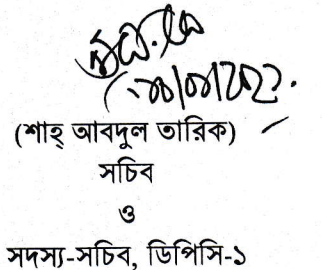 (শাহ্ আবদুল তারিক)
সচিব
ও
সদস্য-সচিব, ডিপিসি-১